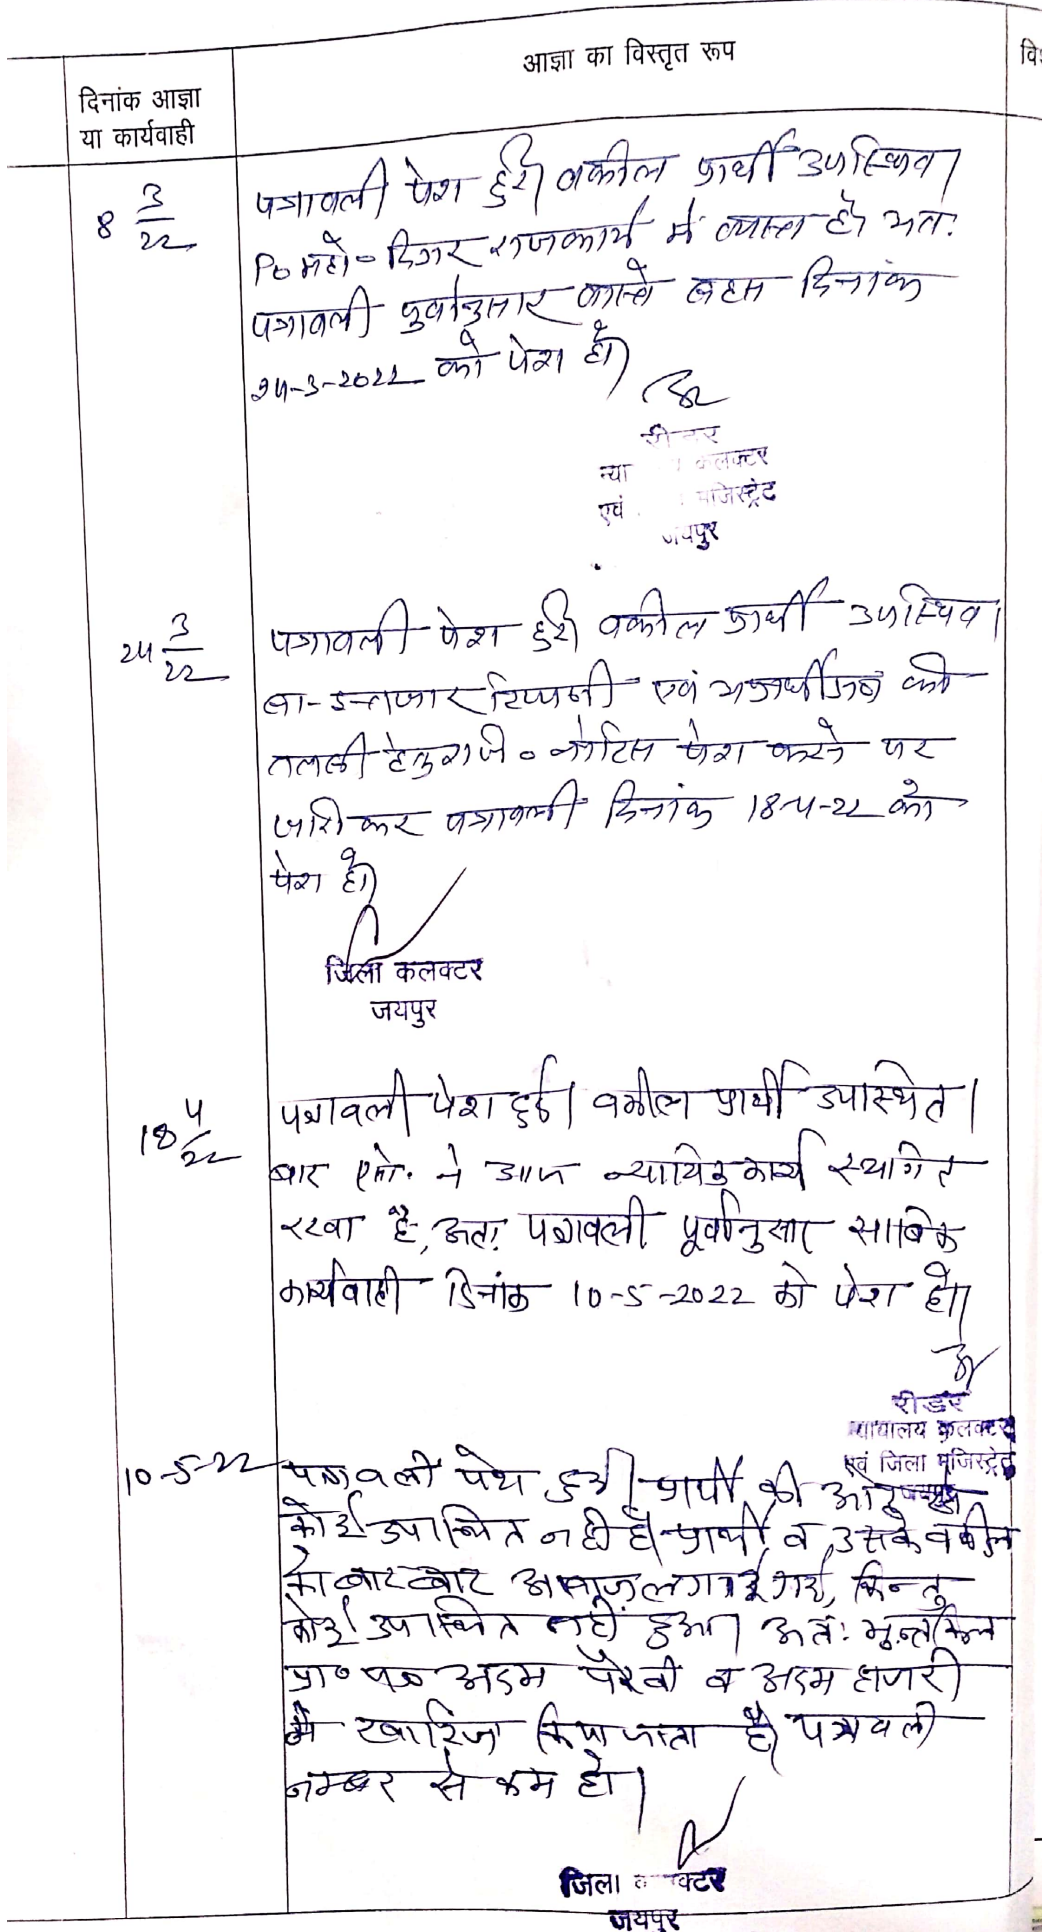 आज्ञा का विस्तृत रूप
दिनांक आज्ञा
या कार्यवाही
8 3/22
पत्रावली पेश हुई। वकील प्रार्थी उपस्थित।
Po महो० दिगर राजकार्य में व्यस्त है। अतः
पत्रावली पुर्वानुसार वास्ते बहस दिनांक
24-3-2022 को पेश हो।
रीडर
न्या कलक्टर
एवं मजिस्ट्रेट
जयपुर
24 3/22
पत्रावली पेश हुई। वकील प्रार्थी उपस्थित।
बा-इन्तजार टिप्पणी एवं अप्रार्थीगण की
तलबी हेतु राजि० नोटिस पेश करने पर
जारी कर पत्रावली दिनांक 18-4-22 को
पेश हो।
जिला कलक्टर
जयपुर
18 4/22
पत्रावली पेश हुई। वकील प्रार्थी उपास्थित।
बार ने आज न्यायिक कार्य स्थगित
रखा है, अतः पत्रावली पूर्वानुसार साबिक
कार्यवाही दिनांक 10-5-2022 को पेश हो।
रीडर
न्यायालय कलक्टर
एवं जिला मजिस्ट्रेट
जयपुर
10-5-22
पत्रावली पेश हुई। प्रार्थी की ओर से
कोई उपास्थित नही है। प्रार्थी व उसके वकील
को बार बार आवाज़ लगवाई गई, किन्तु
कोई उपास्थित नहीं हुआ। अतः मुन्तकिल
प्रा० प० अदम पैरवी व अदम हाजरी
मे खारिज किया जाता है। पत्रावली
नम्बर से कम हो।
जिला क क्टर
जयपुर